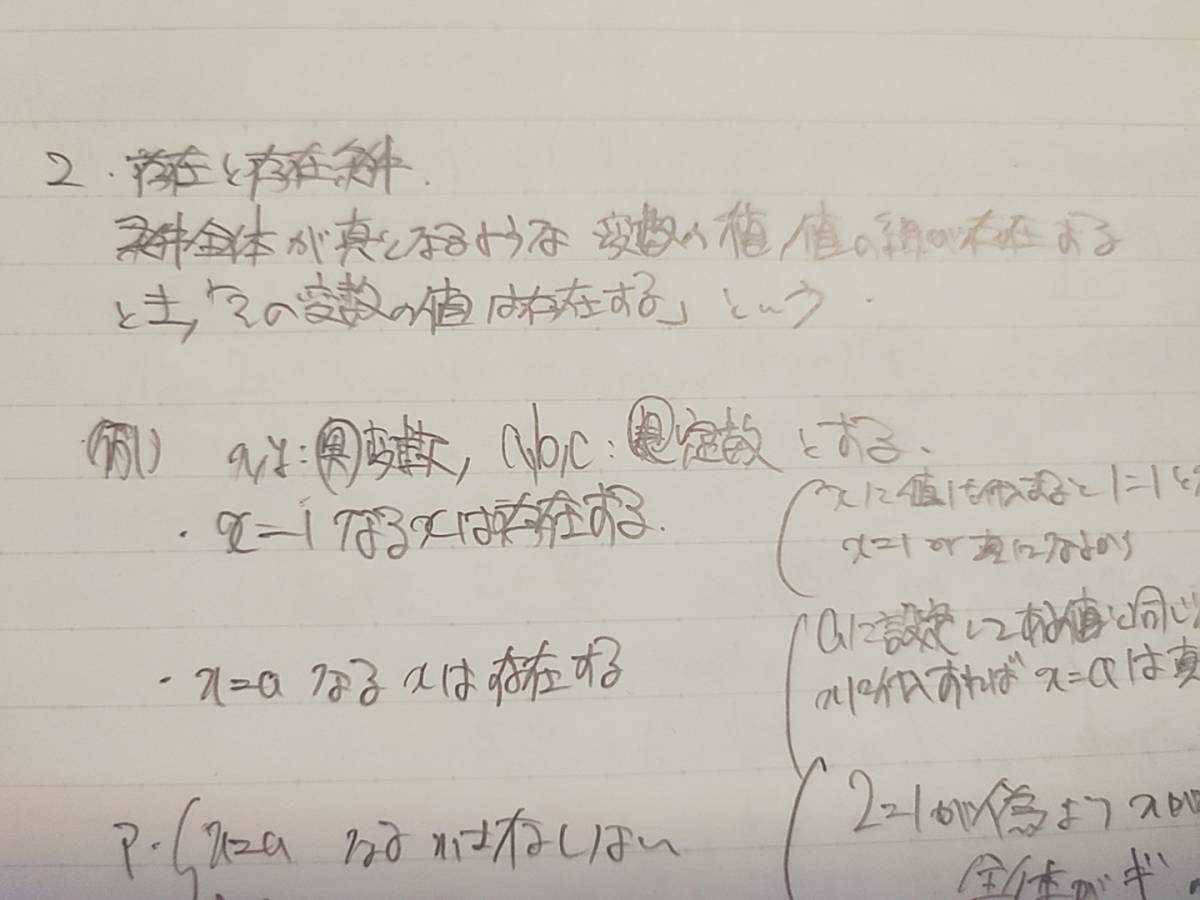 2. 存在と存在条件.
条件全体が真となるような変数の値/値の組が存在する
とき,「その変数の値は存在する」という.
(例1) x,y:実変数, a,b,c:定数とする.
・x=1なるxは存在する.
(xに値1を代入すると1=1と
x=1が真になるから
・x=aなるxは存在する
(aに設定してある値と同じ
xに代入すれば x=aは真
?・{x=a なる xは存在しない
(2=1が偽より xが
全体がギ